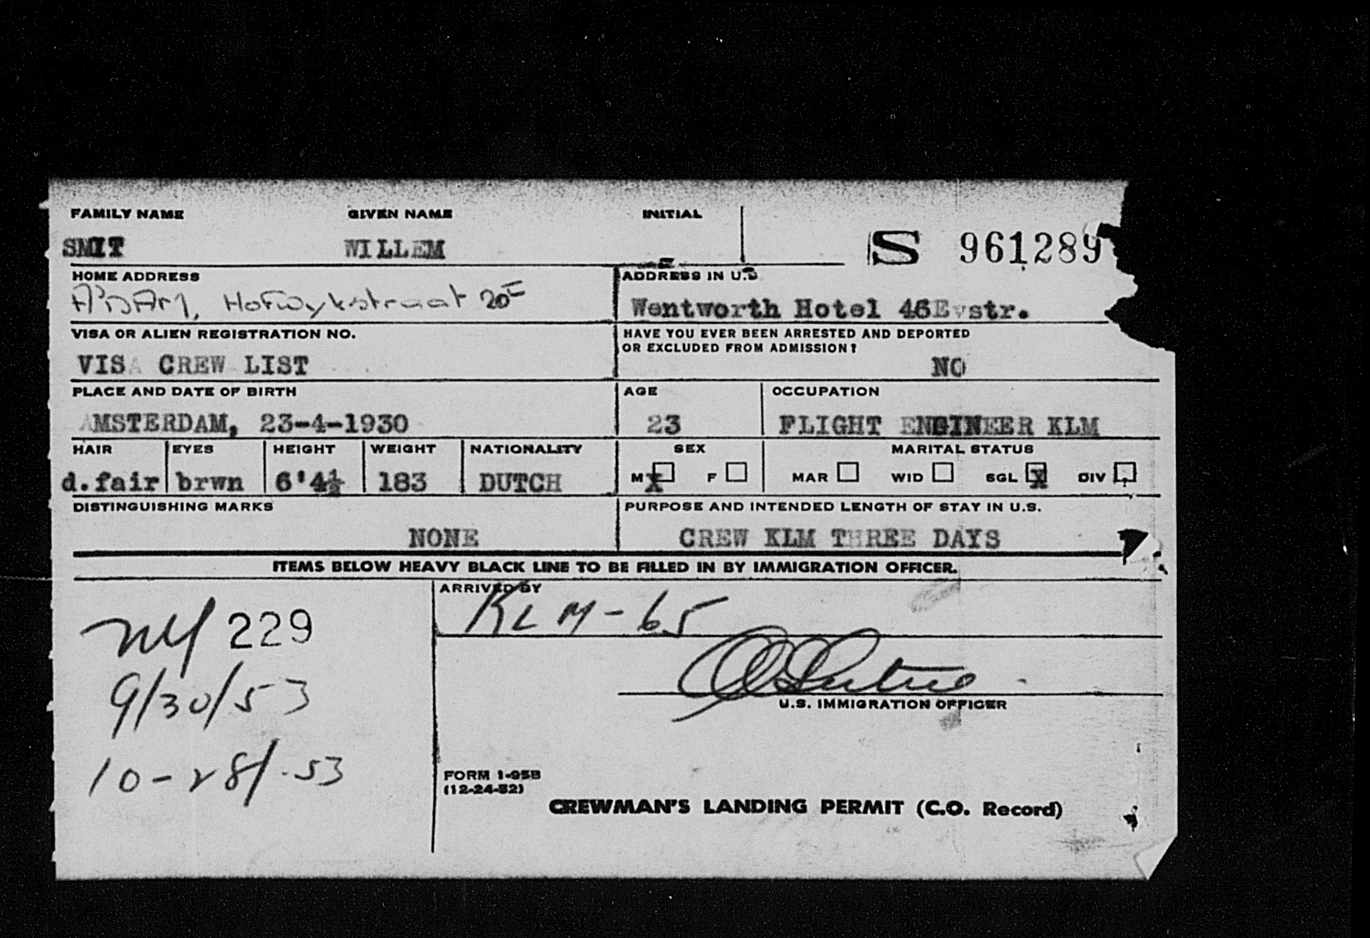 FAMILY NAME GIVEN NAME INITIAL
SMIT WILLEM S 961289
HOME ADDRESS ADDRESS IN U.S
A'DAM, Hofwykstraat 20 Wentworth Hotel 46 str.
VISA OR ALIEN REGISTRATION NO. HAVE YOU EVER BEEN ARRESTED AND DEPORTED
OR EXCLUDED FROM ADMISSION?
VISA CREW LIST NO
PLACE AND DATE OF BIRTH AGE OCCUPATION
AMSTERDAM, 23-4-1930 23 FLIGHT ENGINEER KLM
HAIR EYES HEIGHT WEIGHT NATIONALITY SEX MARITAL STATUS
d.fair brwn 6'4½ 183 DUTCH M X F MAR WID SGL X DIV
DISTINGUISHING MARKS PURPOSE AND INTENDED LENGTH OF STAY IN U.S.
NONE CREW KLM THREE DAYS
ITEMS BELOW HEAVY BLACK LINE TO BE FILLED IN BY IMMIGRATION OFFICER.
ARRIVED BY
NY 229 KLM-65
9/30/53
U.S. IMMIGRATION OFFICER
10-28-53
FORM I-95B
(12-24-52)
CREWMAN'S LANDING PERMIT (C.O. Record)